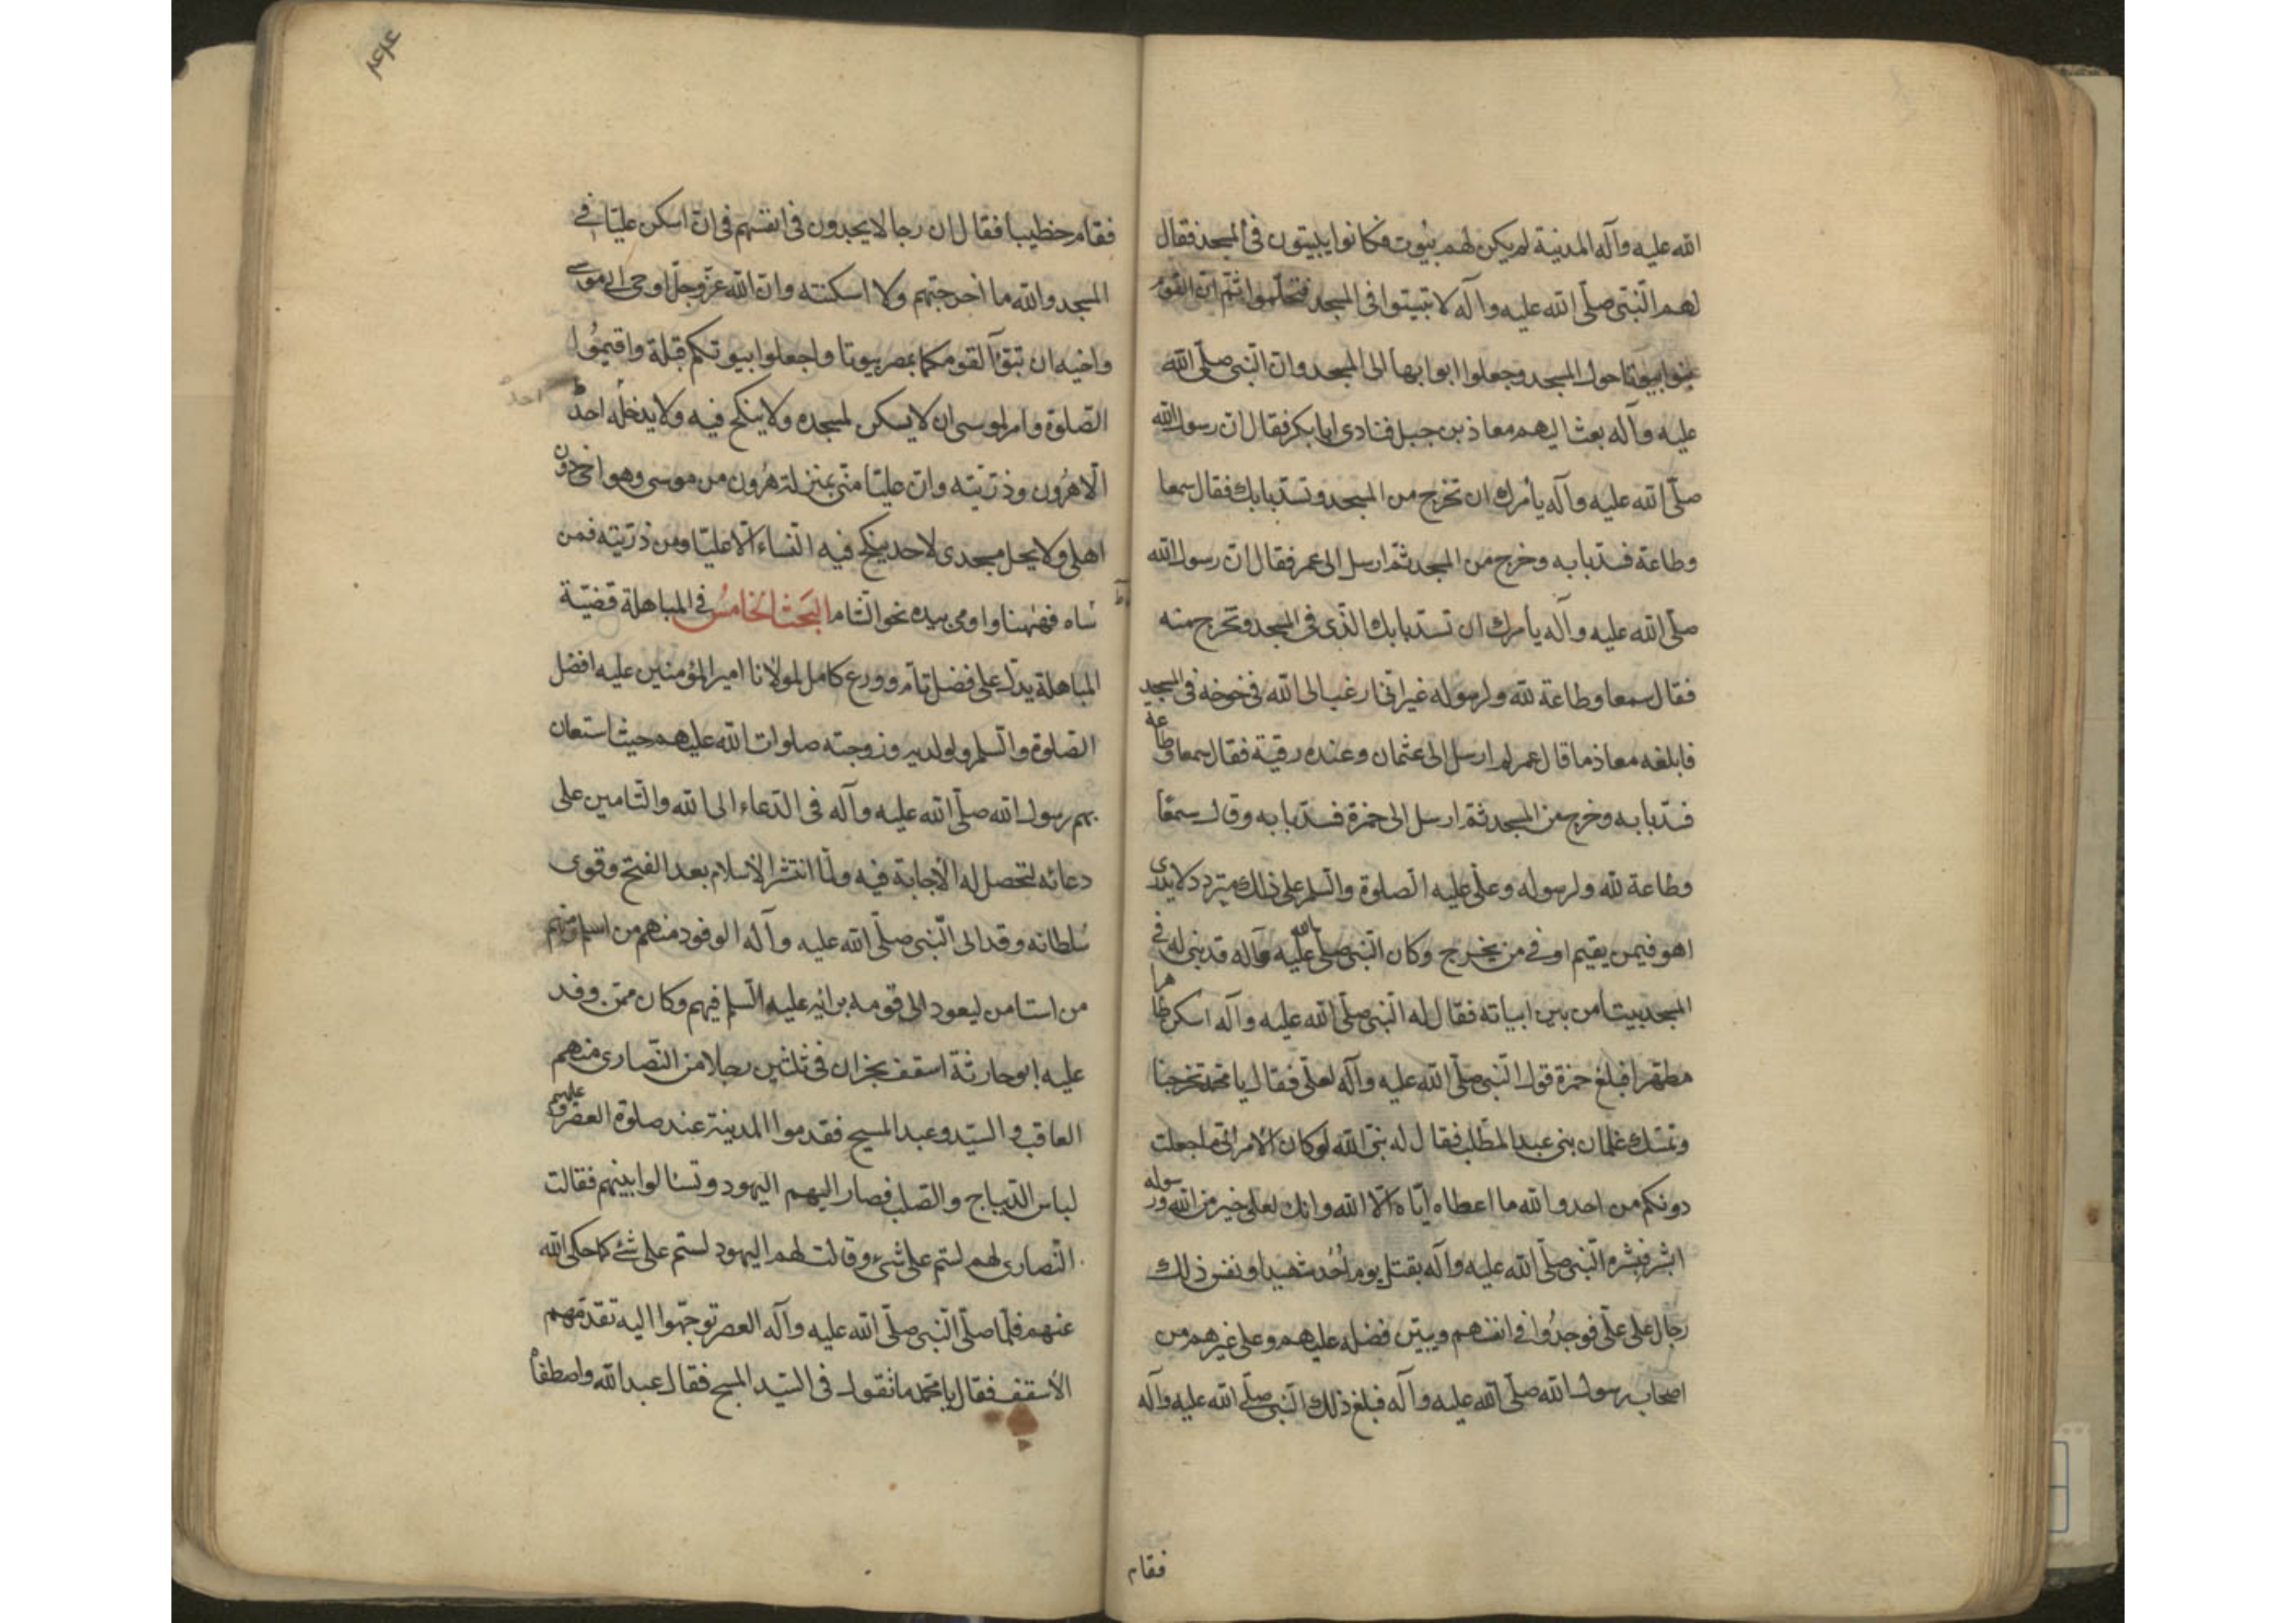 الله عليه وآله المدينة لم يكن لهم بيوت فكانوا يبيتون في المسجد فقال
لهم النبي صلّى الله عليه وآله لا تبيتوا في المسجد فتحتلموا ثمّ ان القوم
بنوا بيوتا حول المسجد وجعلوا ابوابها الى المسجد وان النبي صلّى الله
عليه وآله بعث اليهم معاذ بن جبل فنادى ابا بكر فقال ان رسول الله
صلّى الله عليه وآله يأمرك ان تخرج من المسجد وتسدّ بابك فقال سمعا
وطاعة فسدّ بابه وخرج من المسجد ثمّ ارسل الى عمر فقال انّ رسول الله
صلّى الله عليه وآله يأمرك ان تسدّ بابك الّذى فى المسجد وتخرج منه
فقال سمعا وطاعة لله ولرسوله غير انّى ارغب الى الله فى خوخة فى المسجد
فابلغه معاذ ما قال عمر ثم ارسل الى عثمان وعنده رقية فقال سمعا وطاعة
فسدّ بابه وخرج من المسجد ثمّ ارسل الى حمزة فسدّ بابه وقال سمعًا
وطاعة لله ولرسوله وعلى عليه الصلوة والسلم على ذلك متردد لا يدرى
اهو فيمن يقيم او فى من يخرج وكان النبي صلّى الله عليه وآله قد بنى له فى
المسجد بيتا من بين ابياته فقال له النبي صلّى الله عليه وآله اسكن طاهرا
مطهّرا فبلغ حمزة قول النبي صلّى الله عليه وآله لعلى فقال يا محمد تخرجنا
وتمسك غلمان بنى عبد المطّلب فقال له نبىّ الله لو كان الامر الىّ ما جعلت
دونكم من احد والله ما اعطاه ايّاه الّا الله وانك لعلى خير من الله ورسوله
ابشر فبشره النبي صلّى الله عليه وآله بقتل يوم اُحُد شهيدا ونفس ذلك
رجال على علّى فوجدُوا في انفسهم وتبيّن فضله عليهم وعلى غيرهم من
اصحاب رسول الله صلّى الله عليه وآله فبلغ ذلك النبي صلّى الله عليه وآله
فقام
فقام خطيبا فقال ان رجالا يجدون فى انفسهم فى ان اسكن عليّا فى
المسجد والله ما اخرجتهم ولا اسكنته وان الله عزّ وجلّ اوحى الى موسى
واخيه ان تبوّآ لقومكما بمصر بيوتا واجعلوا بيوتكم قبلة واقيمُوا
الصّلوة وامر لموسى ان لا يسكن لمسجده ولا ينكح فيه ولا يدخله احدٌ
احدٌ
الّا هرُون وذرّيّته وانّ عليّا منّى بمنزلة هرُون من موسى وهو اخى دون
اهلى ولا يحل مسجدى لاحد ينكح فيه النّساء الّا عليّا ومن ذرّيّته فمن
شاه فههنا واومى بيده نحو الشّام البَحث الخامسُ فى المباهلة قضيّة
المباهلة يدلّ على فضل تامّ وورع كامل لمولانا امير المؤمنين عليه افضل
الصّلوة والسّلم ولولديه وزوجته صلوات الله عليهم حيث استعان
بهم رسول الله صلّى الله عليه وآله فى الدّعاء الى الله والتّامين على
دعائه لتحصل له الاجابة فيه ولمّا انتشر الاسلام بعد الفتح وقوى
سُلطانه وفد الى النّبى صلّى الله عليه وآله الوفود منهم من اسلم ومنهم
من استامن ليعود الى قومه برايه عليه السّلم فيهم وكان ممّن وفد
عليه ابو حارثة اسقف نجران فى ثلثين رجلا من النّصارى منهم
العاقب والسيّد وعبد المسيح فقدموا المدينة عند صلوة العصر وعليهم
لباس الدّيباج والصّلب فصار اليهم اليهود وتسالوا بينهم فقالت
النّصارى لهم لستم على شىء وقالت لهم اليهود لستم على شئ كما حكى الله
عنهم فلمّا صلّى النّبى صلّى الله عليه وآله العصر توجّهوا اليه تقدّمهم
الاسقف فقال يا محمّد ما تقول فى السّيّد المسيح فقال عبد الله واصطفاه